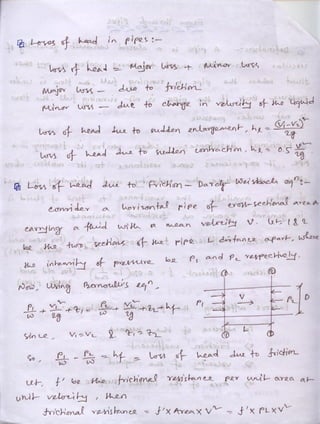 Loses of head in pipes :-
loss of head = Major loss + Minor loss
Major loss - due to friction
Minor loss - due to change in velocity of the liquid
loss of head due to sudden enlargement, he = (V₁-V₂)²/2g
Loss of head due to sudden contraction, hc = 0.5 V²/2g
Loss of head due to Friction - Darcy Weisbach eqⁿ:-
consider a horizontal pipe of cross-sectional area A
carrying a fluid with a mean velocity V. let 1 & 2
be the two sections of the pipe L distance apart, where
the intensity of pressure be P₁ and P₂ respectively.
Now, Using Bernoulli's eqⁿ,
P₁/w + V₁²/2g + Z₁ = P₂/w + V₂²/2g + Z₂ + hf
P₁ V P₂ D
L
Since, V₁=V₂ & Z₁ = Z₂
So, P₁/w - P₂/w = hf = loss of head due to friction
let, f' be the frictional resistance per unit area at
unit velocity, then
frictional resistance = f' x Area x V² = f' x PL x V²